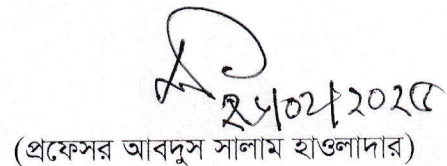 ২৮/০২/২০২৫
(প্রফেসর আবদুস সালাম হাওলাদার)